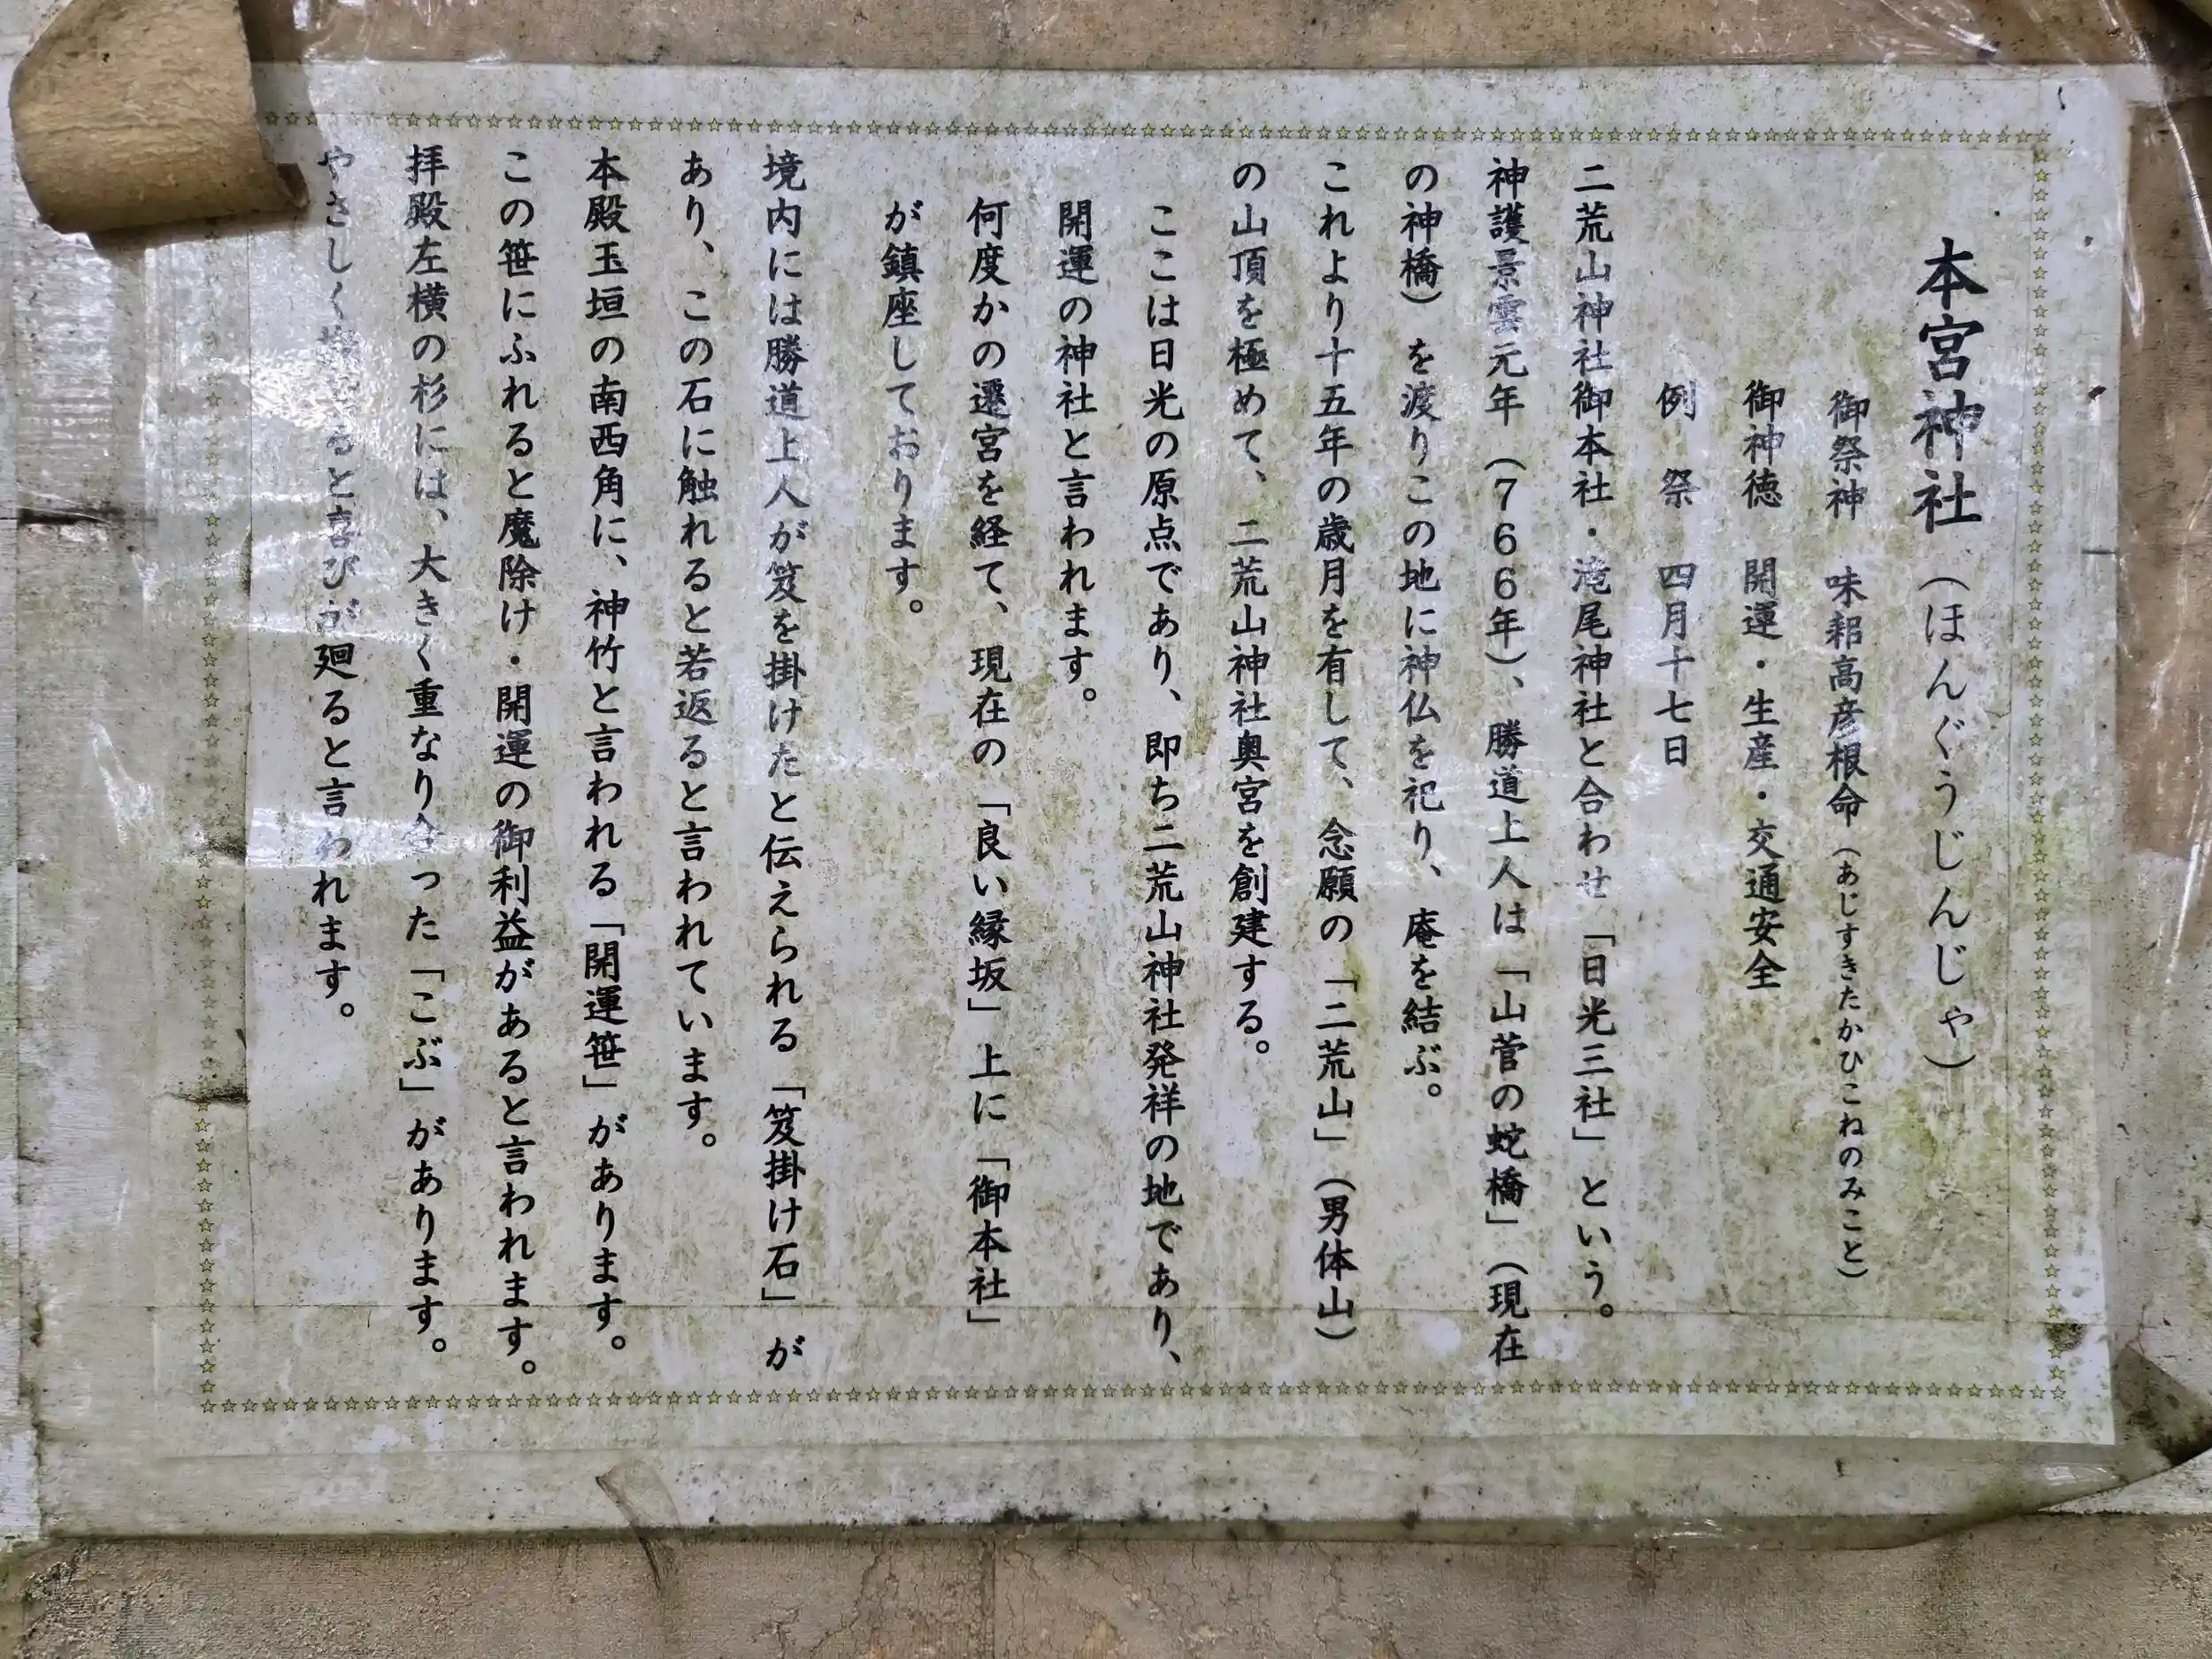 本宮神社（ほんぐうじんじゃ）
御祭神 味耜高彦根命（あじすきたかひこねのみこと）
御神徳 開運・生産・交通安全
例 祭 四月十七日
二荒山神社御本社・滝尾神社と合わせ「日光三社」という。
神護景雲元年（７６６年）、勝道上人は「山菅の蛇橋」（現在
の神橋）を渡りこの地に神仏を祀り、庵を結ぶ。
これより十五年の歳月を有して、念願の「二荒山」（男体山）
の山頂を極めて、二荒山神社奥宮を創建する。
ここは日光の原点であり、即ち二荒山神社発祥の地であり、
開運の神社と言われます。
何度かの遷宮を経て、現在の「良い縁坂」上に「御本社」
が鎮座しております。
境内には勝道上人が笈を掛けたと伝えられる「笈掛け石」が
あり、この石に触れると若返ると言われています。
本殿玉垣の南西角に、神竹と言われる「開運笹」があります。
この笹にふれると魔除け・開運の御利益があると言われます。
拝殿左横の杉には、大きく重なり合った「こぶ」があります。
やさしく ると喜びが廻ると言われます。